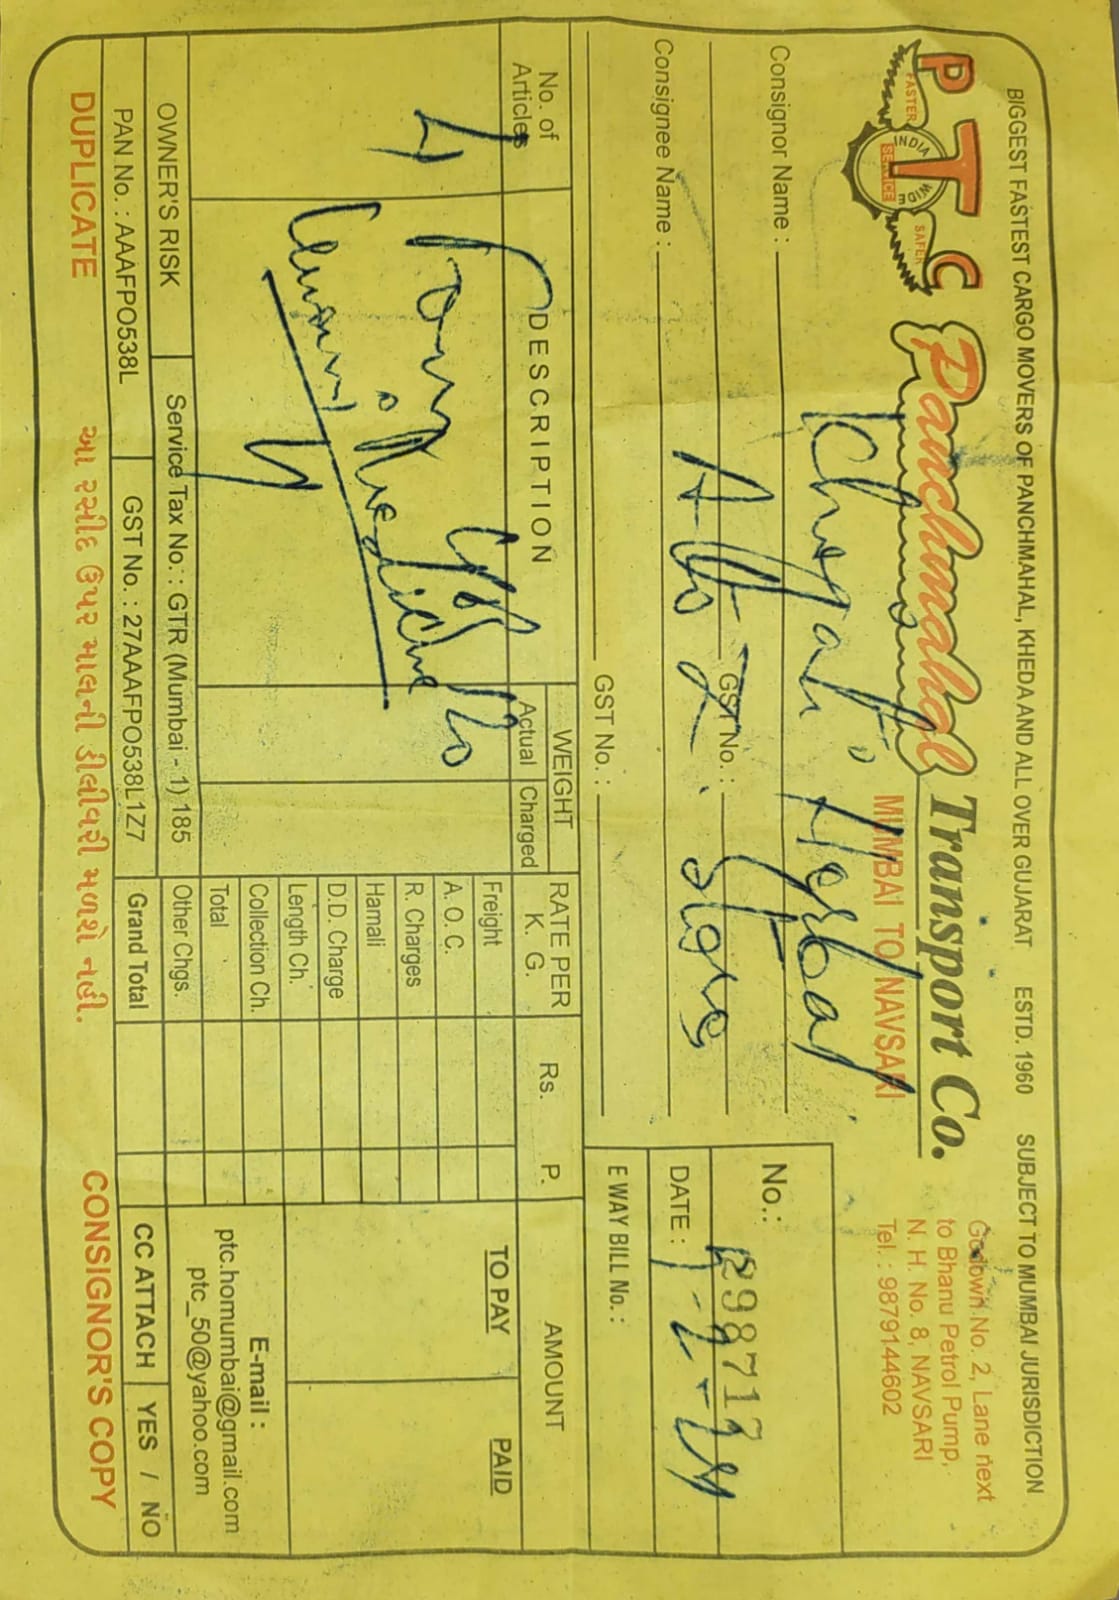 BIGGEST FASTEST CARGO MOVERS OF PANCHMAHAL, KHEDA AND ALL OVER GUJARAT ESTD. 1960 SUBJECT TO MUMBAI JURISDICTION
PTC Panchmahal Transport Co.
FASTER INDIA WIDE SERVICE SAFER
MUMBAI TO NAVSARI
Godown No. 2, Lane next
to Bhanu Petrol Pump,
N. H. No. 8, NAVSARI
Tel. : 9879144602
Consignor Name : Herbal
GST No. :
No.: 298717
Consignee Name : Store
GST No. :
DATE :
E WAY BILL No. :
No. of Articles
DESCRIPTION
WEIGHT
Actual Charged
RATE PER K. G.
Rs. P.
AMOUNT
4
Medicine
Freight
TO PAY PAID
A. O. C.
R. Charges
Hamali
D.D. Charge
Length Ch.
Collection Ch.
Total
Other Chgs.
E-mail :
ptc.homumbai@gmail.com
ptc_50@yahoo.com
OWNER'S RISK Service Tax No. : GTR (Mumbai - 1) 185
PAN No. : AAAFPO538L GST No. : 27AAAFPO538L1Z7 Grand Total CC ATTACH YES / NO
DUPLICATE આ રસીદ ઉપર માલની ડીલીવરી મળશે નહી. CONSIGNOR'S COPY